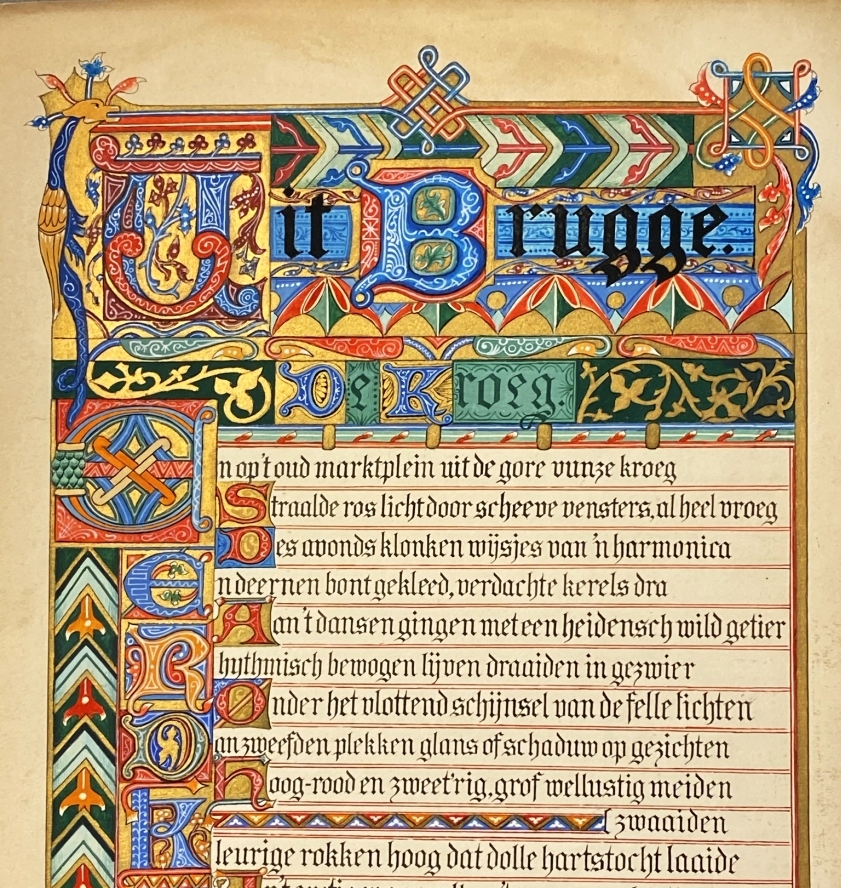 Uit Brugge.
De Kroeg.
En op 't oud marktplein uit de gore vunze kroeg
Straalde ros licht door scheeve vensters, al heel vroeg
Des avonds klonken wijsjes van 'n harmonica
En deernen bont gekleed, verdachte kerels dra
Aan 't dansen gingen met een heidensch wild getier
Rhythmisch bewogen lijven draaiden in gezwier
Onder het vlottend schijnsel van de felle lichten
Dan zweefden plekken glans of schaduw op gezichten
Hoog-rood en zweet'rig, grof wellustig meiden
[zwaaiden
Kleurige rokken hoog dat dolle hartstocht laaide